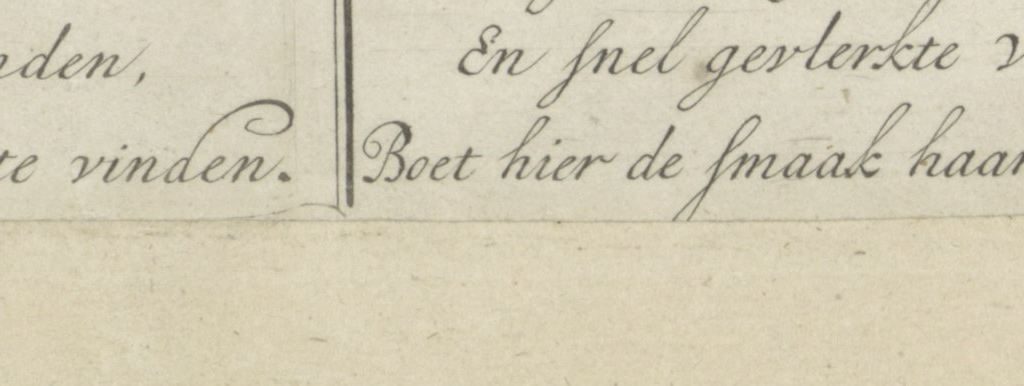 nden,
te vinden.
En ſnel gevlerkte
Boet hier de ſmaak haar